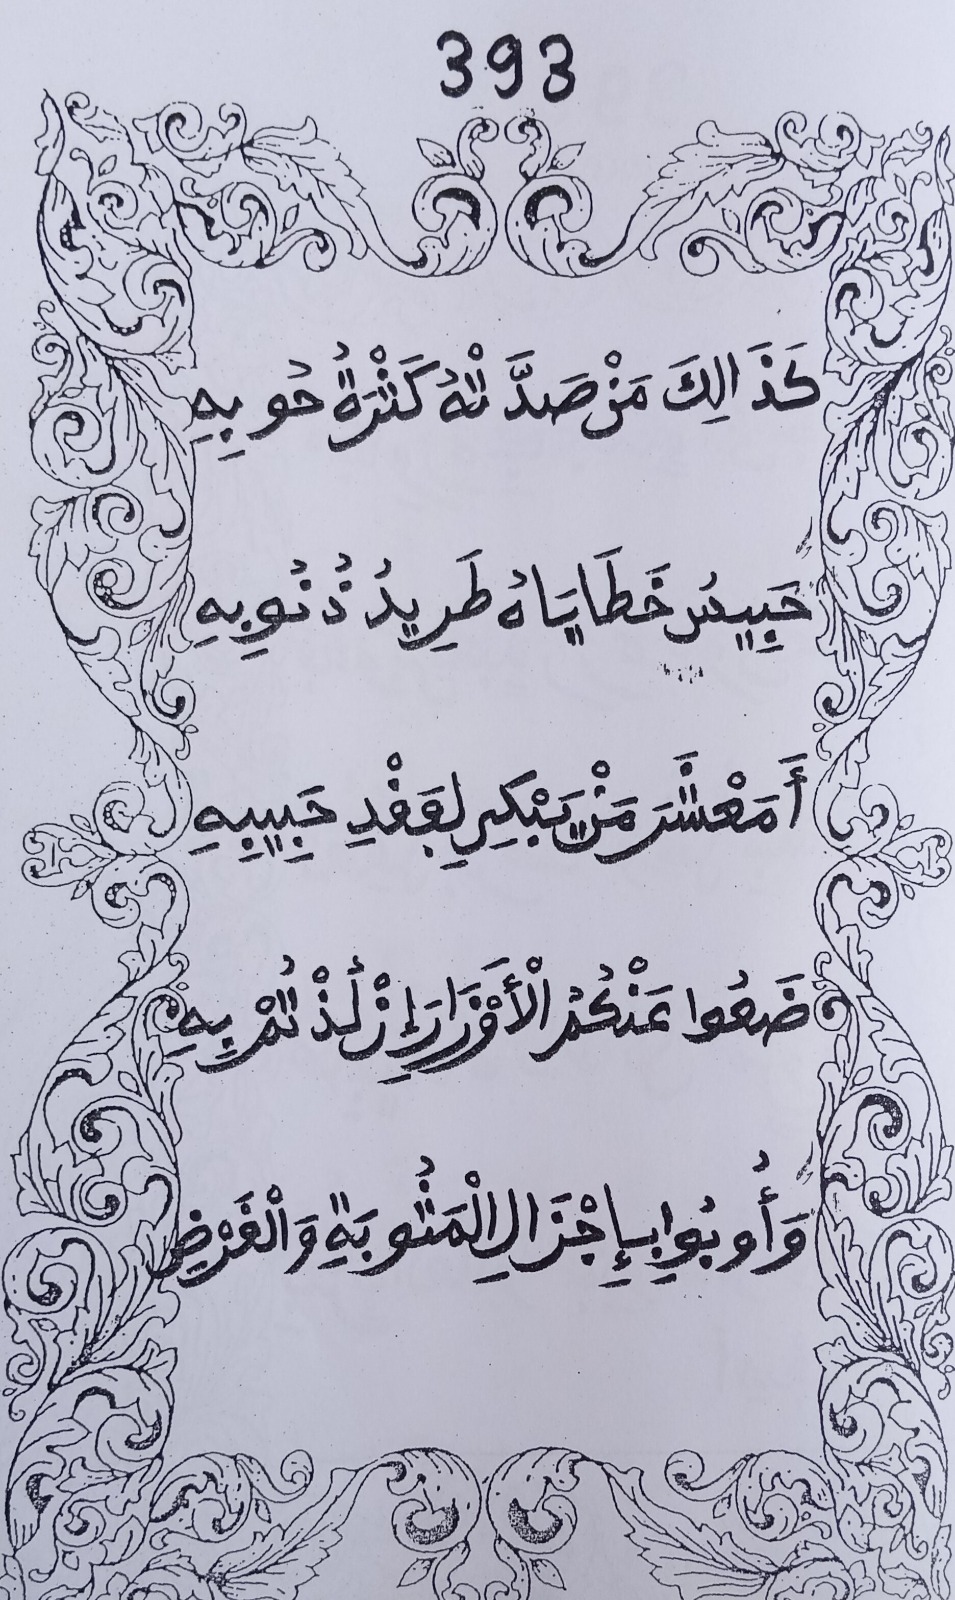 393
كَذَالِكَ مَنْ صَدَّتْهُ كَثْرَةُ حُوبِهِ
حَبِيسُ خَطَايَاهُ طَرِيدُ ذُنُوبِهِ
أَمَعْشَرَ مَنْ يَبْكِي لِفَقْدِ حَبِيبِهِ
ضَعُوا عَنْكُمُ الْأَوْزَارَ إِنْ لُذْتُمْ بِهِ
وَأُوبُوا بِإِجْزَالِ الْمَثُوبَةِ وَالْفَرْضِ